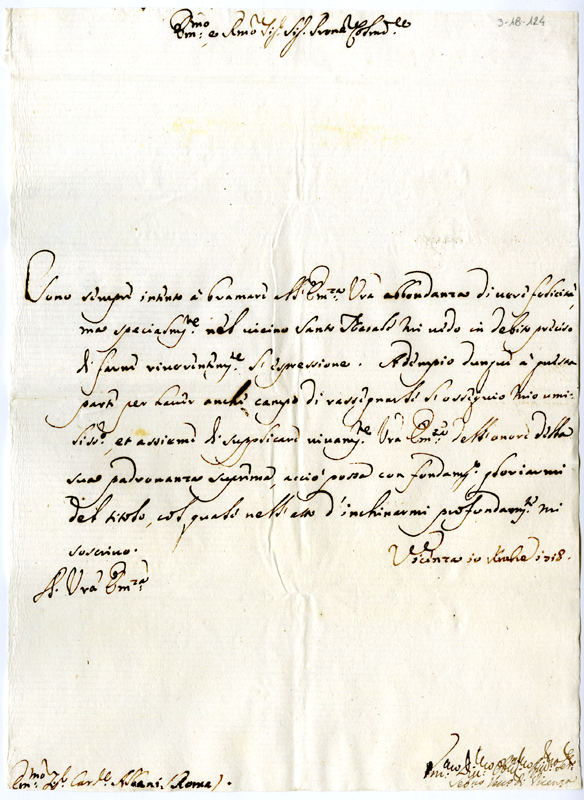 3-18-124
Em:mo e Rmo Sig.r Sig.r Pron Col.mo
Sono sempre intento à bramare All' Em:za Vra abbondanza di vere felicità,
ma specialm:te nel vicino Santo Natale mi vedo in debito preciso
di farne riverentem:te l'espressione. Adempio dunque à questa
parte per haver anche campo di rassegnarle l'ossequio mio umi-
liss:o, et assieme di supplicare vivam:te Vra Em:za dell'onore della
sua padronanza suprema, acciò possa con fondam:to gloriarmi
del titolo, col quale nell'atto d'inchinarmi profondam:te mi
soscrivo.
Vicenza 10 Xmbre 1718.
A. Vra Em:za
Em:mo Sig.r Card:le Albani. (Roma).
Vicenza